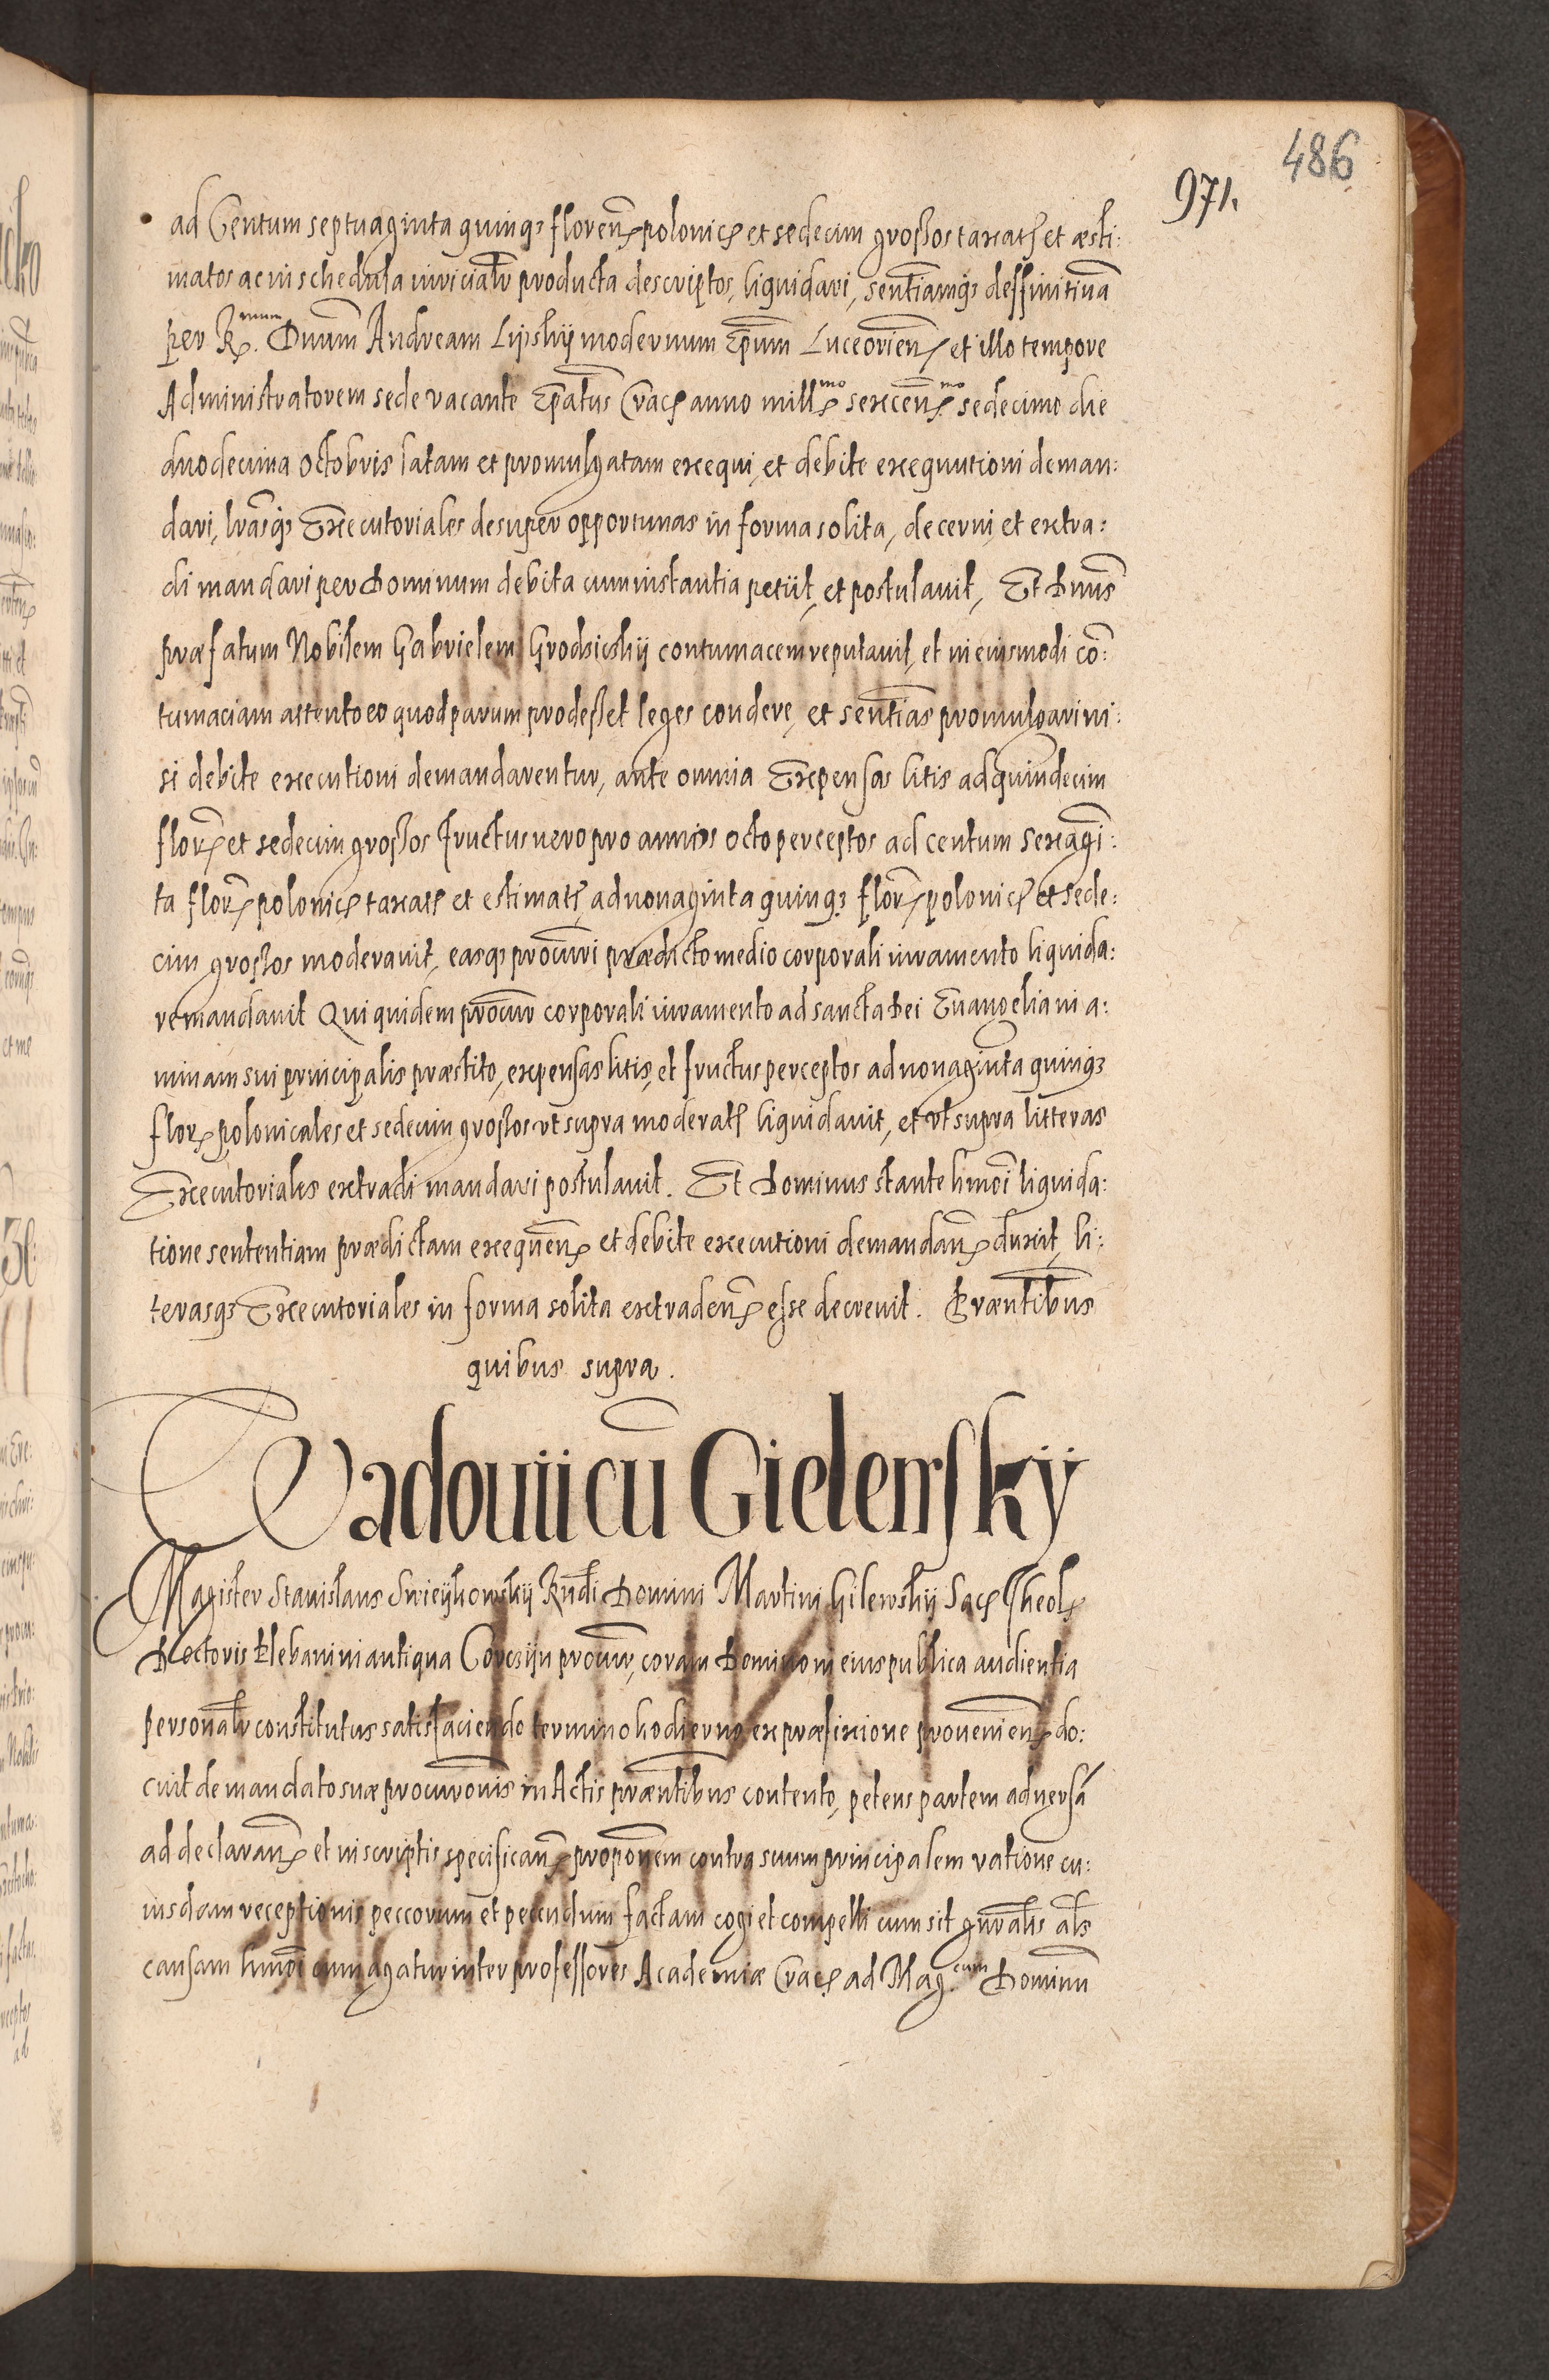 486
971.
ad Centum septuaginta quinqȝ floren̄ polonic et sedecim grossos taxat et æsti:
matos ac in schedula iuricialr̄ producta descriptos, liquidari, senteñamqȝ deffinitiuā
per R.mum Dnum̄ Andream Lipskij modernum Ep̄um Luceorien̄ et illo tempore
Administratorem sede vacante Ep̄atus Crac anno mill.mo sexcen̄.mo sedecimo die
duodecima Octobris latam et promulgatam exequi, et debite exequutioni deman:
dari, lr̄asqȝ Executoriales desuper opportunas in forma solita, decerni, et extra:
di mandari per Dominum debita cum instantia petiit, et postulauit, Et Dnus̄
præfatum Nobilem Gabrielem Grodzicskij contumacem reputauit, et in eiusmodi cō:
tumaciam attento eo quod parum prodesset leges condere, et senten̄ias promulgari ni:
si debite executioni demandarentur, ante omnia Expensas litis ad quindecim
flor̄ et sedecim grossos fructus uero pro annis octo perceptos ad centum sexagī:
ta flor̄ polonic taxat et estimat, ad nonaginta quinqȝ flor̄ polonic et sede:
cim grossos moderauit, easqȝ procur̄i prædicto medio corporali iuramento liquida:
re mandauit Qui quidem procur̄ corporali iuramento ad sancta Dei Euangelia in a:
nimam sui principalis præstito, expensas litis, et fructus perceptos ad nonaginta quinqȝ
flor polonicales et sedecim grossos ut supra moderat liquidauit, et ut supra litteras
Executoriales extradi mandari postulauit. Et Dominus stante hm̄oi liquida:
tione sententiam prædictam exequen̄ et debite executioni demandan̄ duxit, li:
terasqȝ Executoriales in forma solita extraden̄ esse decreuit. Præntibus̄
quibus supra.
Vadouii cū Gielewsky
Magister Stanislaus Swieykowskij Rndi̅ Domini Martini Gilewskij Sac Theol
Doctoris Plebani in antiqua procur̄, coram Domino in eius publica audientia
personalr̄ constitutus satisfaciendo termino hodierno ex præfixione prouenien̄ do:
cuit de mandato suæ procurōnis in Actis præntibus̄ contento, petens partem aduersā
ad declaran̄ et in scriptis specifican̄ propōnem contra suum principalem ratione cu:
iusdam receptionis peccorum et pecudum factam cogi et compelli cum sit gnralis̄ als̄
causam hm̄oi cum agatur inter professores Academiæ Crac ad Mag.cum Dominū